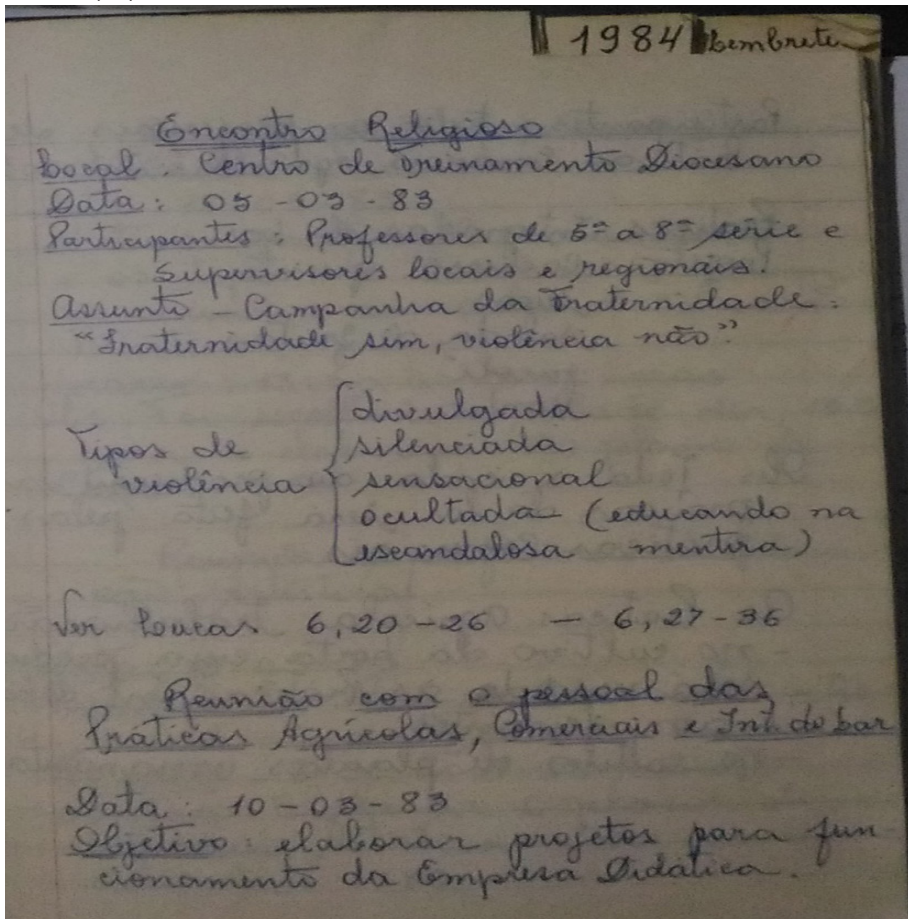 1984 Lembrete
Encontro Religioso
Local. Centro de Treinamento Diocesano
Data: 05-03-83
Participantes: Professores de 5ª a 8ª série e
Supervisores locais e regionais.
Assunto - Campanha da Fraternidade:
"Fraternidade sim, violência não".
Tipos de
violência
divulgada
silenciada
sensacional
ocultada (educando na
escandalosa mentira)
Ver Loucas 6,20-26 - 6,27-36
Reunião com o pessoal das
Práticas Agrícolas, Comerciais e Int. do Lar
Data: 10-03-83
Objetivo: elaborar projetos para fun
cionamento da Empresa Didática.